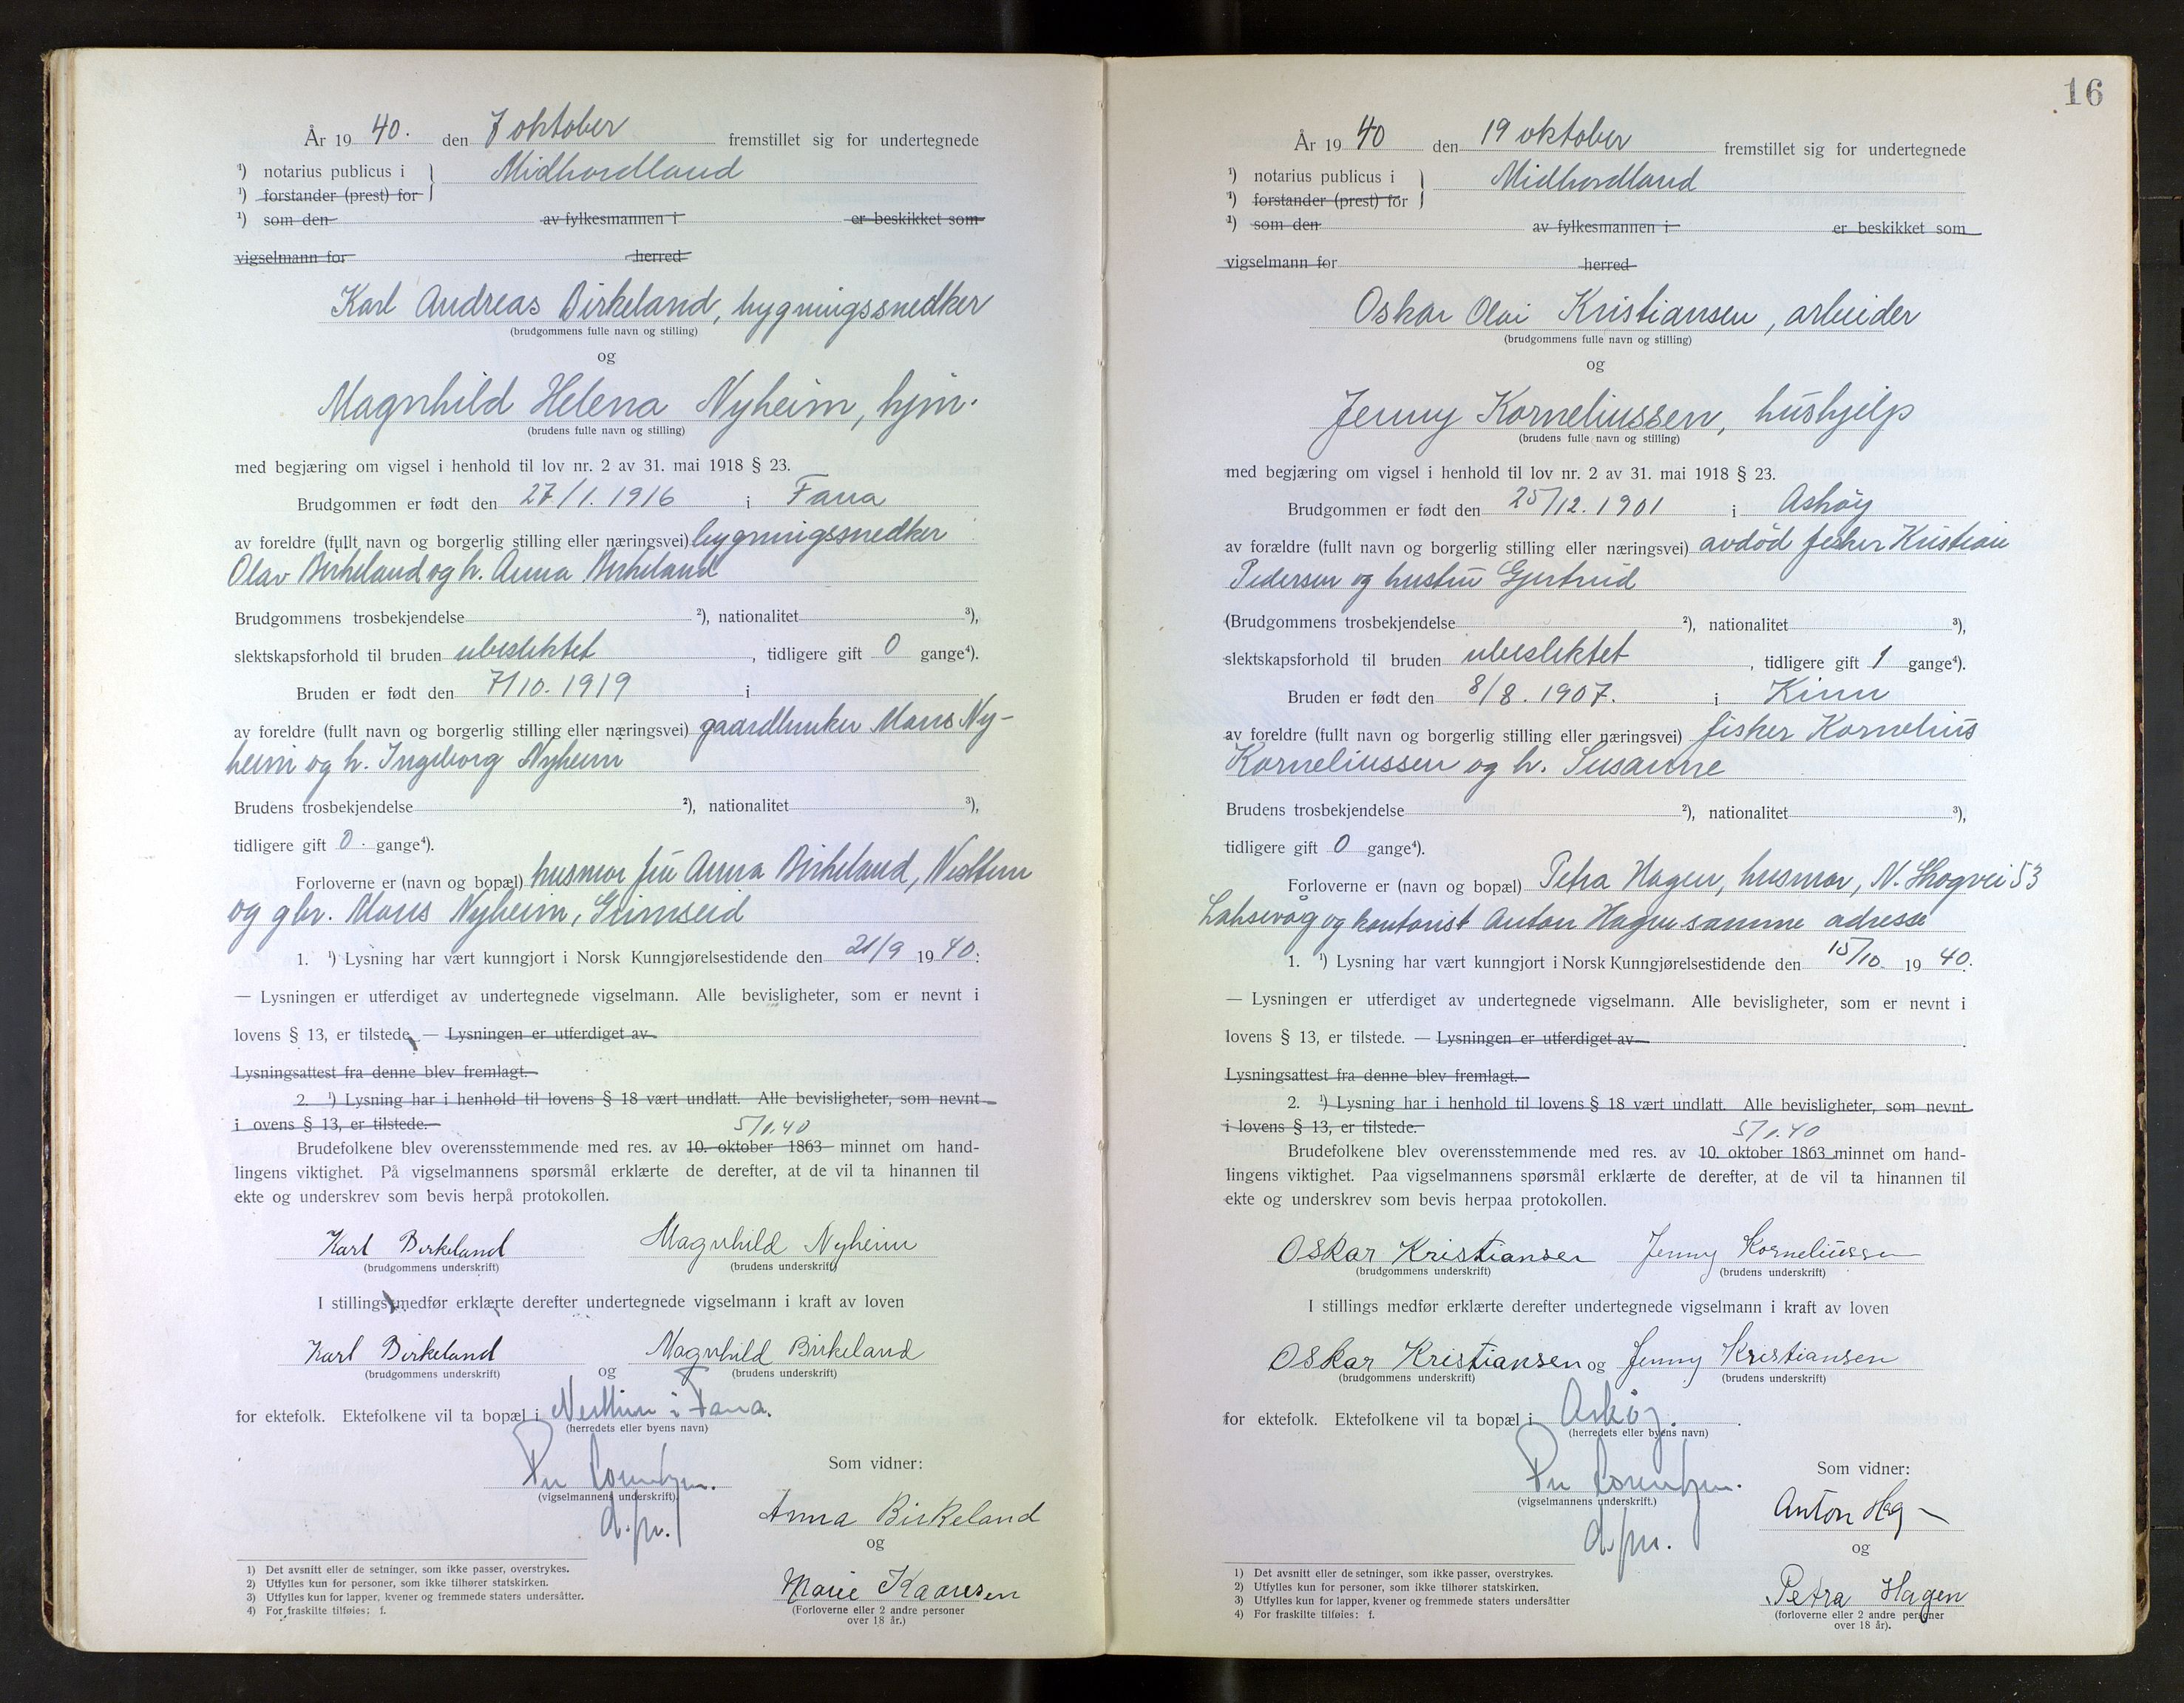 År 19 40. den 7 oktober fremstillet sig for undertegnede
¹) notarius publicus i } Midhordland
¹) forstander (prest) for
¹) som den av fylkesmannen i er beskikket som
vigselmann for herred
Karl Andreas Birkeland, bygningssnedker
(brudgommens fulle navn og stilling)
og
Magnhild Helena Nyheim, hjm.
(brudens fulle navn og stilling)
med begjæring om vigsel i henhold til lov nr. 2 av 31. mai 1918 § 23.
Brudgommen er født den 27/1. 1916 i Fana
av foreldre (fullt navn og borgerlig stilling eller næringsvei) bygningssnedker
Olav Birkeland og h. Anna Birkeland
Brudgommens trosbekjendelse ²), nationalitet ³),
slektskapsforhold til bruden ubeslektet, tidligere gift 0 gange⁴).
Bruden er født den 7/10. 1919 i
av foreldre (fullt navn og borgerlig stilling eller næringsvei) gaardbruker Mons Ny-
heim og h. Ingeborg Nyheim
Brudens trosbekjendelse ²), nationalitet ³),
tidligere gift 0 gange⁴).
Forloverne er (navn og bopæl) husmor fru Anna Birkeland, Nesttun
og gbr. Mons Nyheim, Grimseid
1. ¹) Lysning har vært kunngjort i Norsk Kunngjørelsestidende den 21/9 19 40:
— Lysningen er utferdiget av undertegnede vigselmann. Alle bevisligheter, som er nevnt i
lovens § 13, er tilstede. — Lysningen er utferdiget av
Lysningsattest fra denne blev fremlagt.
2. ¹) Lysning har i henhold til lovens § 18 vært undlatt. Alle bevisligheter, som nevnt
i ovens § 13, er tilstede.
5/1.40
Brudefolkene blev overensstemmende med res. av 10. oktober 1863 minnet om hand-
lingens viktighet. På vigselmannens spørsmål erklærte de derefter, at de vil ta hinannen til
ekte og underskrev som bevis herpå protokollen.
Karl Birkeland Magnhild Nyheim
(brudgommens underskrift) (brudens underskrift)
I stillings medfør erklærte derefter undertegnede vigselmann i kraft av loven
Karl Birkeland og Magnhild Birkeland
(brudgommens underskrift) (brudens underskrift)
for ektefolk. Ektefolkene vil ta bopæl i Nesttun i Fana.
(herredets eller byens navn)
Per Lorentzen.
(vigselmannens underskrift)
d.fm.
Som vidner:
Anna Birkeland
og
Marie
(Forloverne eller 2 andre personer
over 18 år.)
1) Det avsnitt eller de setninger, som ikke passer, overstrykes.
2) Utfylles kun for personer, som ikke tilhører statskirken.
3) Utfylles kun for lapper, kvener og fremmede staters undersåtter.
4) For fraskilte tilføies: f.
16
År 19 40 den 19 oktober fremstillet sig for undertegnede
¹) notarius publicus i } Midhordland
¹) forstander (prest) for
¹) som den av fylkesmannen i er beskikket som
vigselmann for herred
Oskar Olai Kristiansen, arbeider
(brudgommens fulle navn og stilling)
og
Jenny Korneliussen, hushjelp
(brudens fulle navn og stilling)
med begjæring om vigsel i henhold til lov nr. 2 av 31. mai 1918 § 23.
Brudgommen er født den 25/12. 1901 i Askøy
av forældre (fullt navn og borgerlig stilling eller næringsvei) avdød fisker Kristian
Pedersen og hustru Gjertrud
(Brudgommens trosbekjendelse ²), nationalitet ³),
slektskapsforhold til bruden ubeslektet, tidligere gift 1 gange⁴).
Bruden er født den 8/8. 1907. i Kinn
av foreldre (fullt navn og borgerlig stilling eller næringsvei) fisker Kornelius
Korneliussen og h. Susanne
Brudens trosbekjendelse ²), nationalitet ³),
tidligere gift 0 gange⁴).
Forloverne er (navn og bopæl) Petra Hagen, husmor, N. Skogvei 53
Laksevåg og kontorist Anton Hagen samme adresse
1. ¹) Lysning har vært kunngjort i Norsk Kunngjørelsestidende den 15/10. 19 40.
— Lysningen er utferdiget av undertegnede vigselmann. Alle bevisligheter, som er nevnt i
lovens § 13, er tilstede. — Lysningen er utferdiget av
Lysningsattest fra denne blev fremlagt.
2. ¹) Lysning har i henhold til lovens § 18 vært undlatt. Alle bevisligheter, som nevnt
i lovens § 13, er tilstede.
5/1.40
Brudefolkene blev overensstemmende med res. av 10. oktober 1863 minnet om hand-
lingens viktighet. Paa vigselmannens spørsmål erklærte de derefter, at de vil ta hinannen til
ekte og underskrev som bevis herpaa protokollen.
Oskar Kristiansen Jenny Korneliussen
(brudgommens underskrift) (brudens underskrift)
I stillings medfør erklærte derefter undertegnede vigselmann i kraft av loven
Oskar Kristiansen og Jenny Kristiansen
(brudgommens underskrift) (brudens underskrift)
for ektefolk. Ektefolkene vil ta bopæl i Askøy.
(herredets eller byens navn)
Per Lorentzen.
(vigselmannens underskrift.)
d.fm.
Som vidner:
Anton Hag
og
Petra Hagen
(forloverne eller 2 andre personer
over 18 år).
1) Det avsnitt eller de setninger, som ikke passer, overstrykes.
2) Utfylles kun for personer, som ikke tilhører statskirken.
3) Utfylles kun for lapper, kvener og fremmede staters undersåtter
4) For fraskilte tilføies: f.